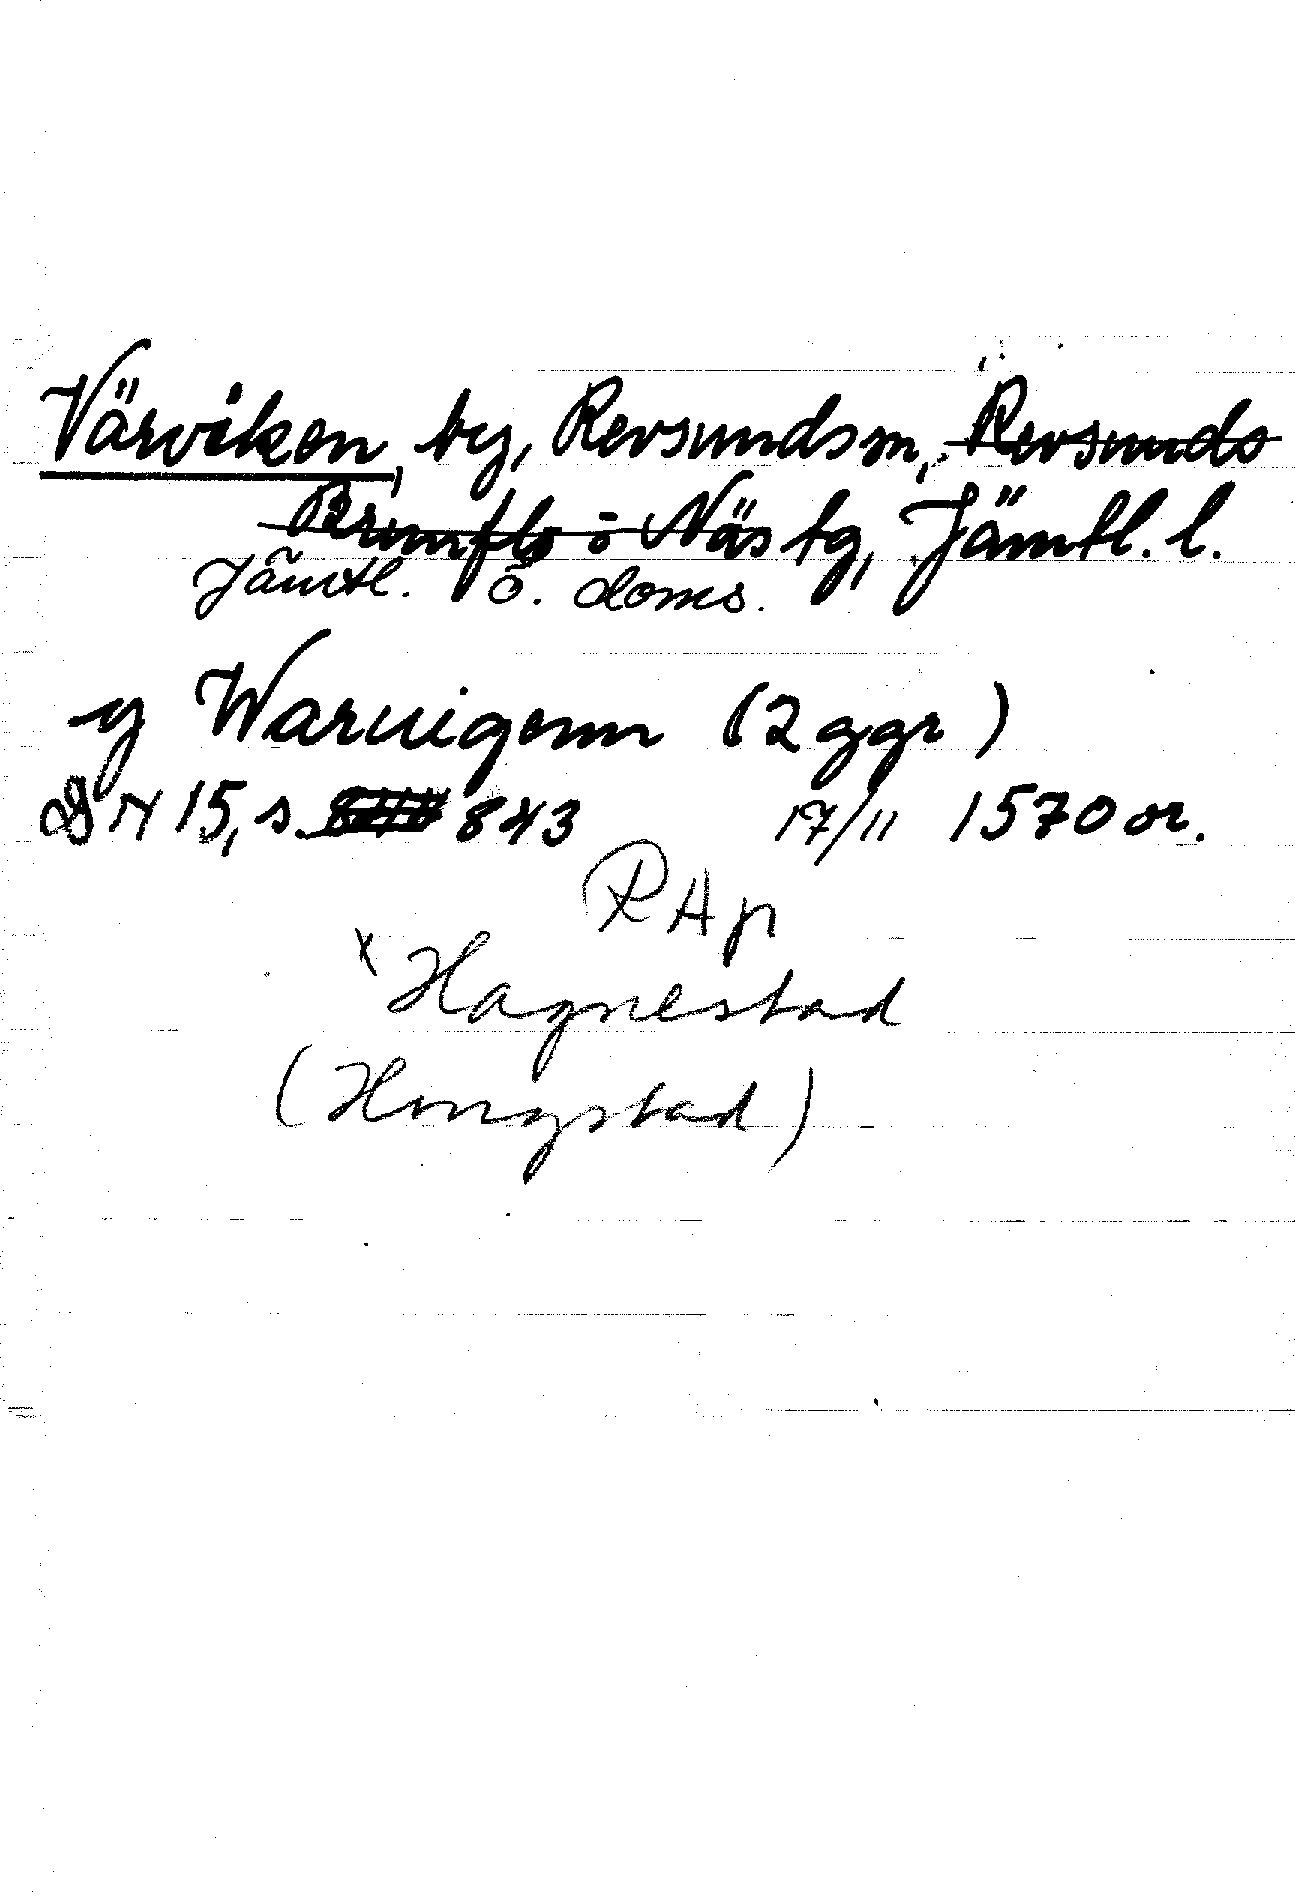 Värviken, by, Revsunds sn, Revsunds
Brunflo o Näs tg, Jämtl. l.
Jämtl. ö. doms.
y Waruigenn (2 ggr)
DN 15, s. 843 17/11 1570 or.
RAp
x Hagnestad
(Hongstad)